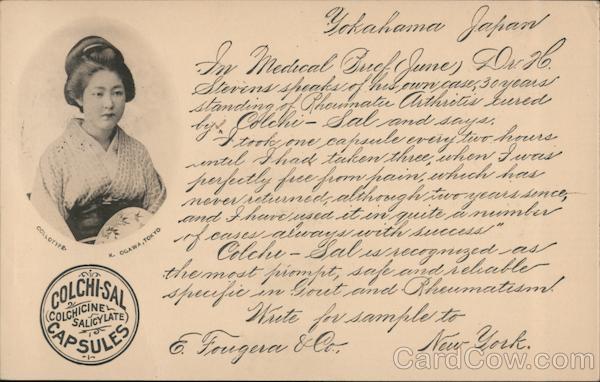 Yokahama Japan
In Medical Brief (June) Dr. H.
Stevens speaks of his own case, 30 years
standing of Rheumatic Arthritis cured
by Colchi-Sal and says:
"I took one capsule every two hours
until I had taken three, when I was
perfectly free from pain, which has
never returned, although two years since,
and I have used it in quite a number
of cases always with success"
Colchi-Sal is recognized as
the most prompt, safe and reliable
specific in Gout and Rheumatism.
Write for sample to
E. Fougera & Co. New York.
COLLOTYPE.
K. OGAWA, TOKYO
COLCHI-SAL
(COLCHICINE
SALICYLATE)
CAPSULES
CardCow.com